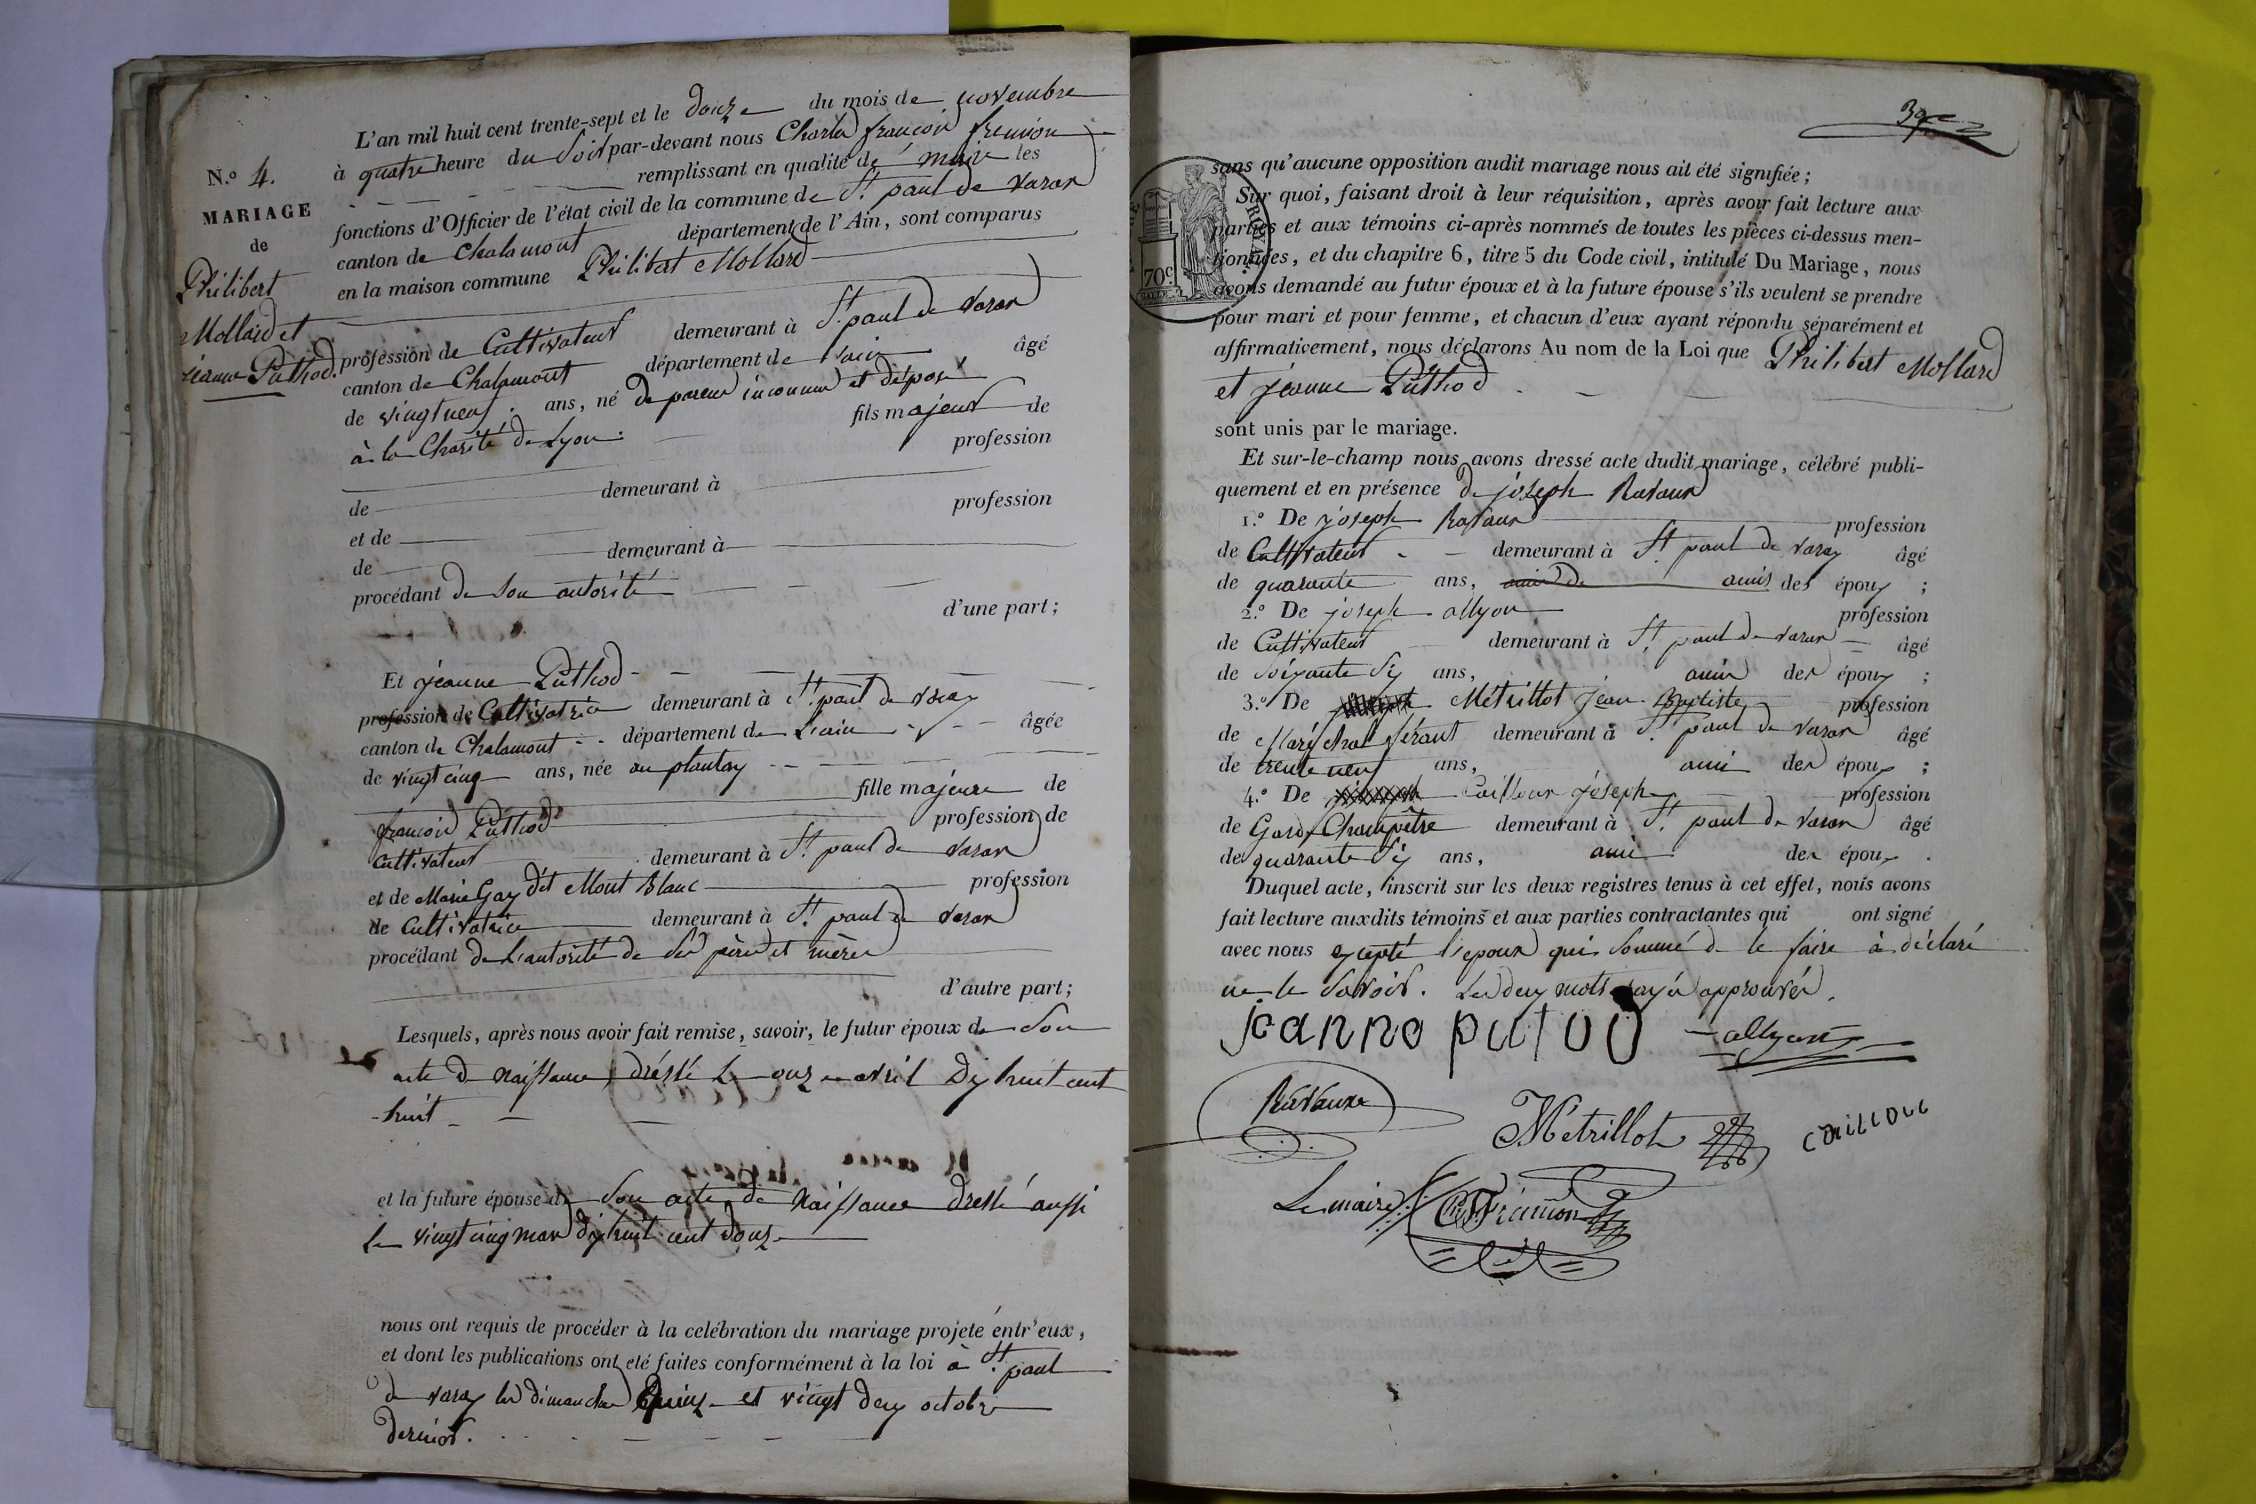 L'an mil huit cent trente-sept et le douze du mois de novembre
à quatre heure du soir par-devant nous Charles françois fremion
remplissant en qualité de maire les
fonctions d'Officier de l'état civil de la commune de St. paul de varax
canton de Chalamont département de l'Ain, sont comparus
en la maison commune Philibert Mollard
N.o 4.
MARIAGE
de
Philibert
Mollard et
jeanne Puthod.
profession de Cultivateur demeurant à St. paul de varax
canton de Chalamont département de l'ain âgé
de vingt neuf ans, né de parens inconnus et déposé
à la Charité de Lyon. fils majeur de
profession
de demeurant à
et de profession
de demeurant à
procédant de son autorité
d'une part;
Et jeanne Puthod
profession de Cultivatrice demeurant à St. paul de varax
canton de Chalamont département de L'ain âgée
de vingt cinq ans, née au plantay
fille majeure de
françois Puthod profession de
Cultivateur demeurant à St. paul de varax
et de Marie Gay dit Mont Blanc profession
de Cultivatrice demeurant à St. paul de varax
procédant de L'autorité de ses père et mère
d'autre part;
Lesquels, après nous avoir fait remise, savoir, le futur époux de son
acte de naissance dressé le onze avril dix huit cent
huit
et la future épouse de son acte de naissance dressé aussi
le vingt cinq mars dix huit cent douze
nous ont requis de procéder à la celébration du mariage projeté entr'eux,
et dont les publications ont eté faites conformément à la loi à St. paul
de varax les dimanches quinze et vingt deux octobre
dernier.
39e
ROYAL
70c.
sans qu'aucune opposition audit mariage nous ait été signifiée;
Sur quoi, faisant droit à leur réquisition, après avoir fait lecture aux
parties et aux témoins ci-après nommés de toutes les pièces ci-dessus men-
tionnées, et du chapitre 6, titre 5 du Code civil, intitulé Du Mariage, nous
avons demandé au futur époux et à la future épouse s'ils veulent se prendre
pour mari et pour femme, et chacun d'eux ayant répondu séparément et
affirmativement, nous déclarons Au nom de la Loi que Philibert Mollard
et jeanne Puthod
sont unis par le mariage.
Et sur-le-champ nous avons dressé acte dudit mariage, célébré publi-
quement et en présence de joseph Ravaux
1.o De joseph Ravaux profession
de Cultivateur demeurant à St. paul de varax âgé
de quarante ans, amis des époux;
2.o De joseph allyon profession
de Cultivateur demeurant à St. paul de varax âgé
de soixante six ans, amis des époux;
3.o De Métrillot jean Baptiste profession
de Maréchal férant demeurant à St. paul de varax âgé
de trente neuf ans, ami des époux;
4.o De Cailloux joseph profession
de Garde Champêtre demeurant à St. paul de varax âgé
de quarante six ans, ami des époux.
Duquel acte, inscrit sur les deux registres tenus à cet effet, nous avons
fait lecture auxdits témoins et aux parties contractantes qui ont signé
avec nous excepté l'époux qui sommé de le faire à déclaré
ne le savoir. Les deux mots rayés approuvés.
jeanne putod allyon
Ravaux
Métrillot
cailloux
Le maire Ch. Frémion